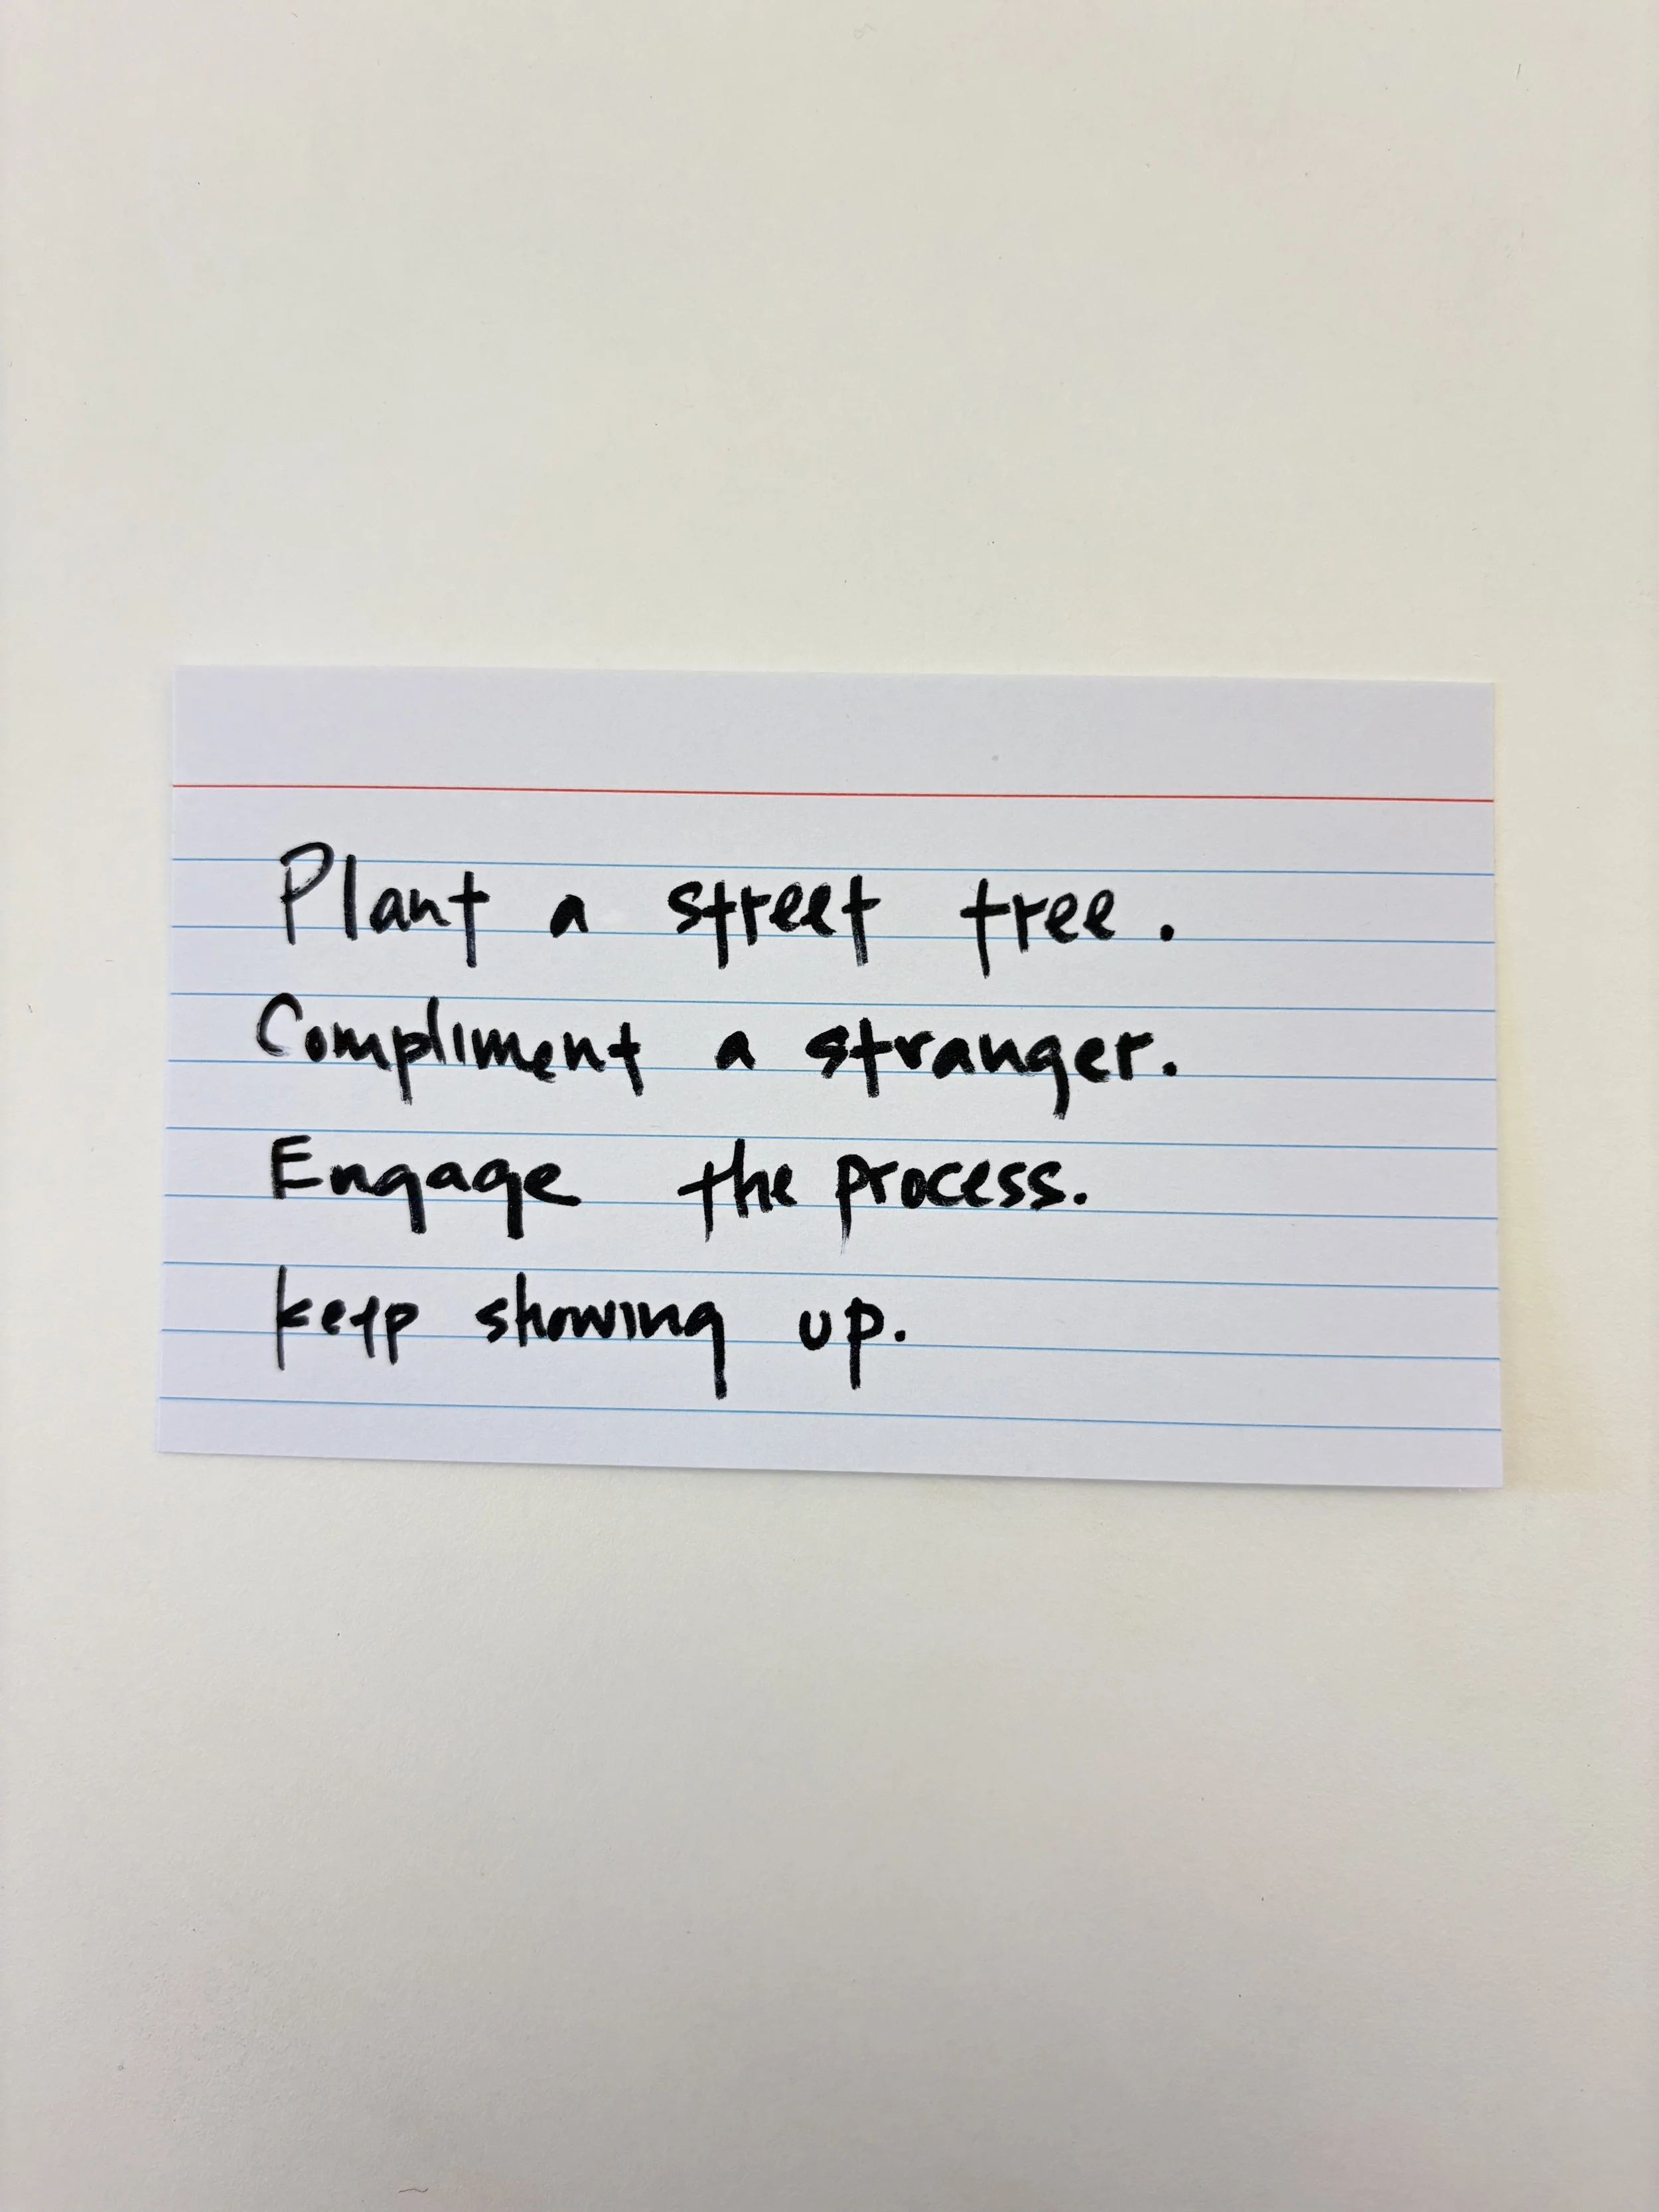 Plant a street tree.
Compliment a stranger.
Engage the process.
keep showing up.